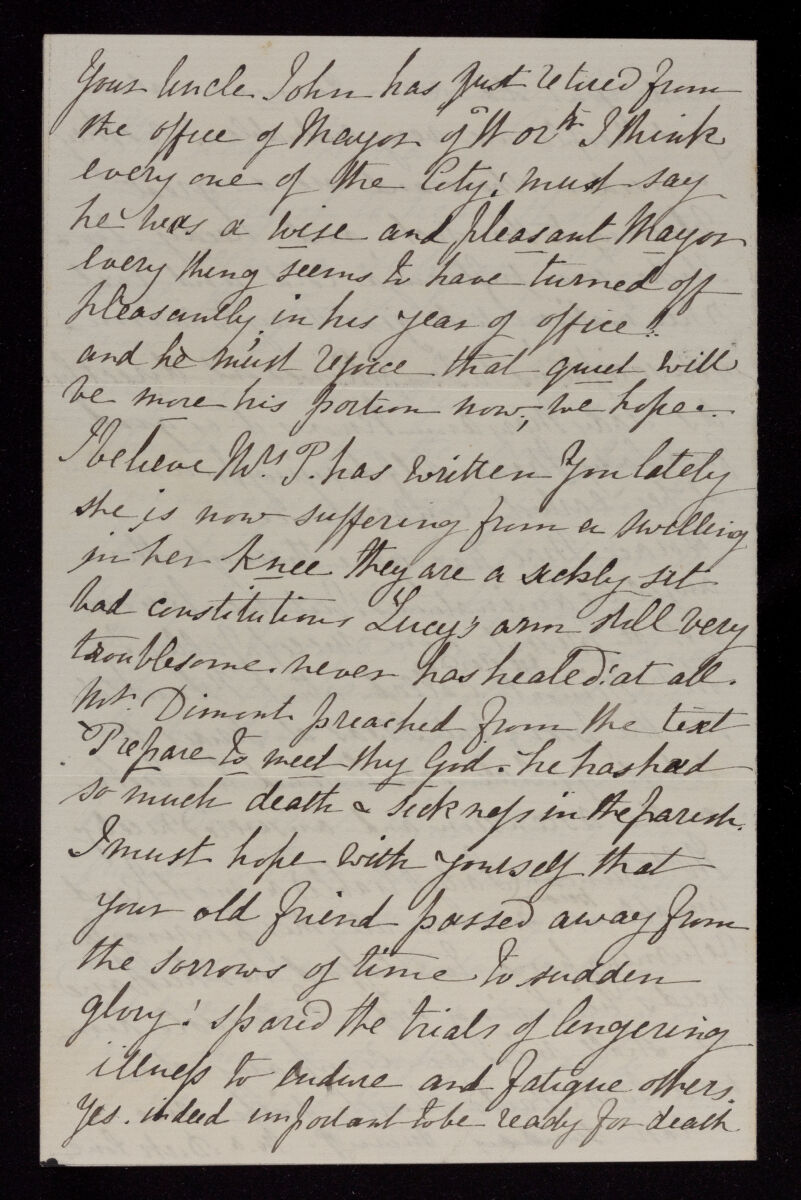 Your Uncle John has just retired from
the office of Mayor of Worth I think
every one of the City! must say
he was a wise and pleasant Mayor
every thing seems to have turned off
pleasantly in his year of office!!
and he must rejoice that quiet will
be more his portion now, we hope.
I believe Mrs P. has written You lately
she is now suffering from a swelling
in her knee they are a sickly set
bad constitutions Lucy's arm still very
troublesome. never has healed! at all.
Mr. Dimont preached from the text
Prepare to meet thy God. he has had
so much death & sickness in the parish.
I must hope with yourself that
your old friend passed away from
the sorrows of time to sudden
glory! spared the trials of lingering
illness to endure and fatigue others.
Yes. indeed important to be ready for death